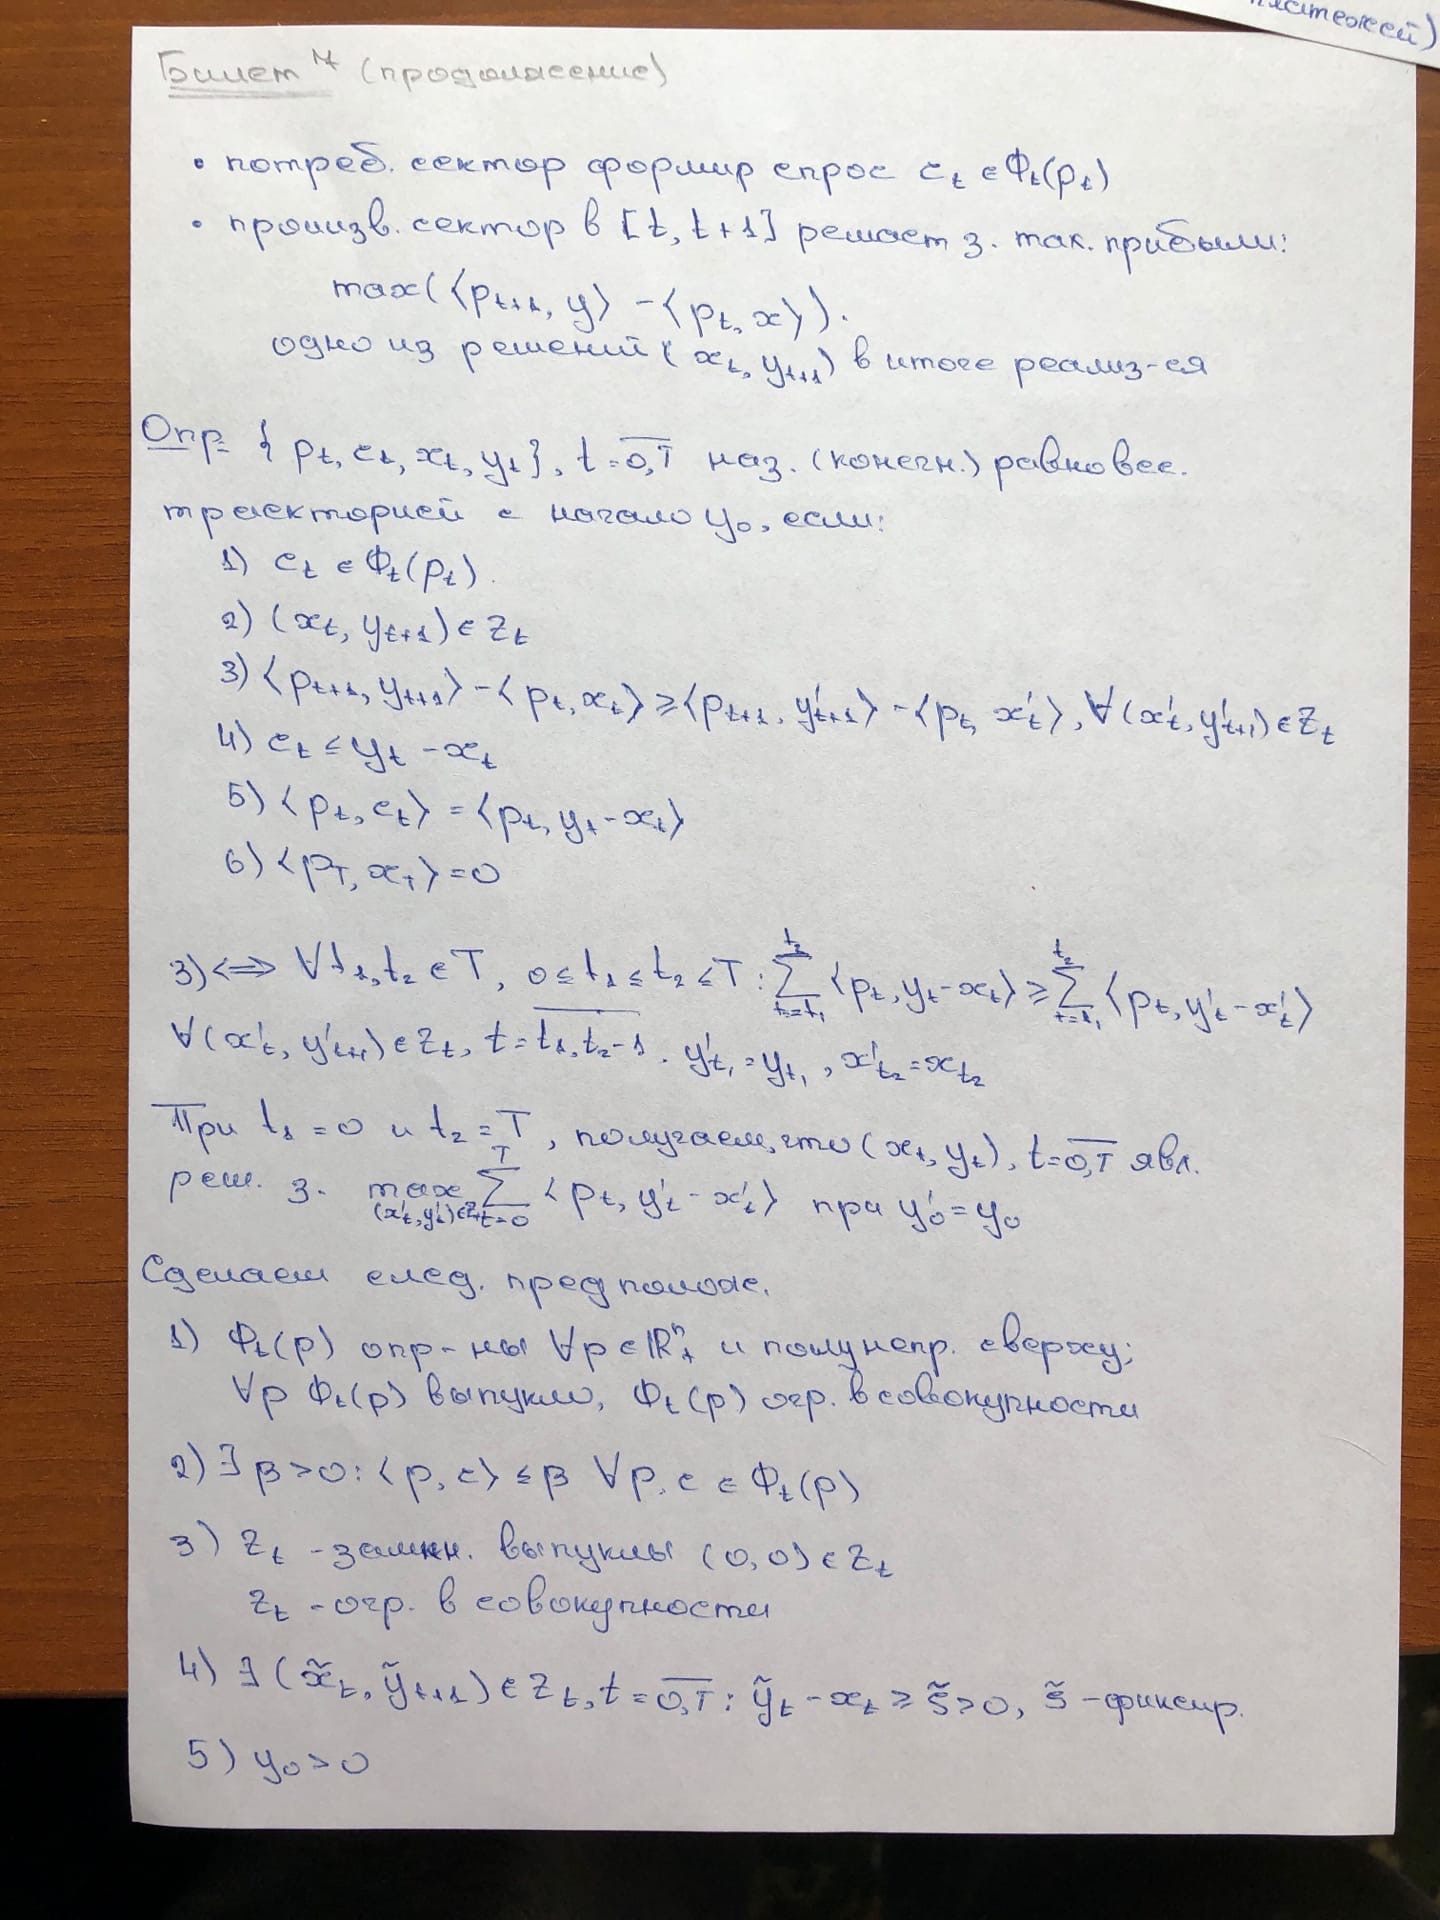 платежей)
Билет 7 (продолжение)
• потреб. сектор формир спрос c_t ∈ Φ_t(p_t)
• произв. сектор в [t, t+1] решает з. так. прибыли:
max(⟨p_{t+1}, y⟩ - ⟨p_t, x⟩).
одно из решений (x_t, y_{t+1}) в итоге реализ-ся
Опр. { p_t, c_t, x_t, y_t }, t = \overline{0,T} наз. (конечн.) равновес.
траекторией с начало y_0, если:
1) c_t ∈ Φ_t(p_t).
2) (x_t, y_{t+1}) ∈ Z_t
3) ⟨p_{t+1}, y_{t+1}⟩ - ⟨p_t, x_t⟩ ≥ ⟨p_{t+1}, y'_{t+1}⟩ - ⟨p_t, x'_t⟩, ∀(x'_t, y'_{t+1}) ∈ Z_t
4) c_t ≤ y_t - x_t
5) ⟨p_t, c_t⟩ = ⟨p_t, y_t - x_t⟩
6) ⟨p_T, x_T⟩ = 0
3) ⟺ ∀ t_1, t_2 ∈ T, 0 ≤ t_1 ≤ t_2 ≤ T : \sum_{t=t_1}^{t_2} ⟨p_t, y_t - x_t⟩ ≥ \sum_{t=t_1}^{t_2} ⟨p_t, y'_t - x'_t⟩
∀(x'_t, y'_{t+1}) ∈ Z_t, t = \overline{t_1, t_2-1}. y'_{t_1} = y_{t_1}, x'_{t_2} = x_{t_2}
При t_1 = 0 и t_2 = T, получаем, что (x_t, y_t), t = \overline{0,T} явл.
реш. з. max_{(x'_t, y'_t) ∈ Z_t} \sum_{t=0}^{T} ⟨p_t, y'_t - x'_t⟩ при y'_0 = y_0
Сделаем след. предполож.
1) Φ_t(p) опр-ны ∀p ∈ ℝ^n_+ и полунепр. сверху;
∀p Φ_t(p) выпукло, Φ_t(p) огр. в совокупности
2) ∃ β > 0 : ⟨p, c⟩ ≤ β ∀p, c ∈ Φ_t(p)
3) Z_t - замкн. выпуклы (0, 0) ∈ Z_t
Z_t - огр. в совокупности
4) ∃ (x̃_t, ỹ_{t+1}) ∈ Z_t, t = \overline{0,T} : ỹ_t - x_t ≥ s̃ > 0, s̃ - фиксир.
5) y_0 > 0